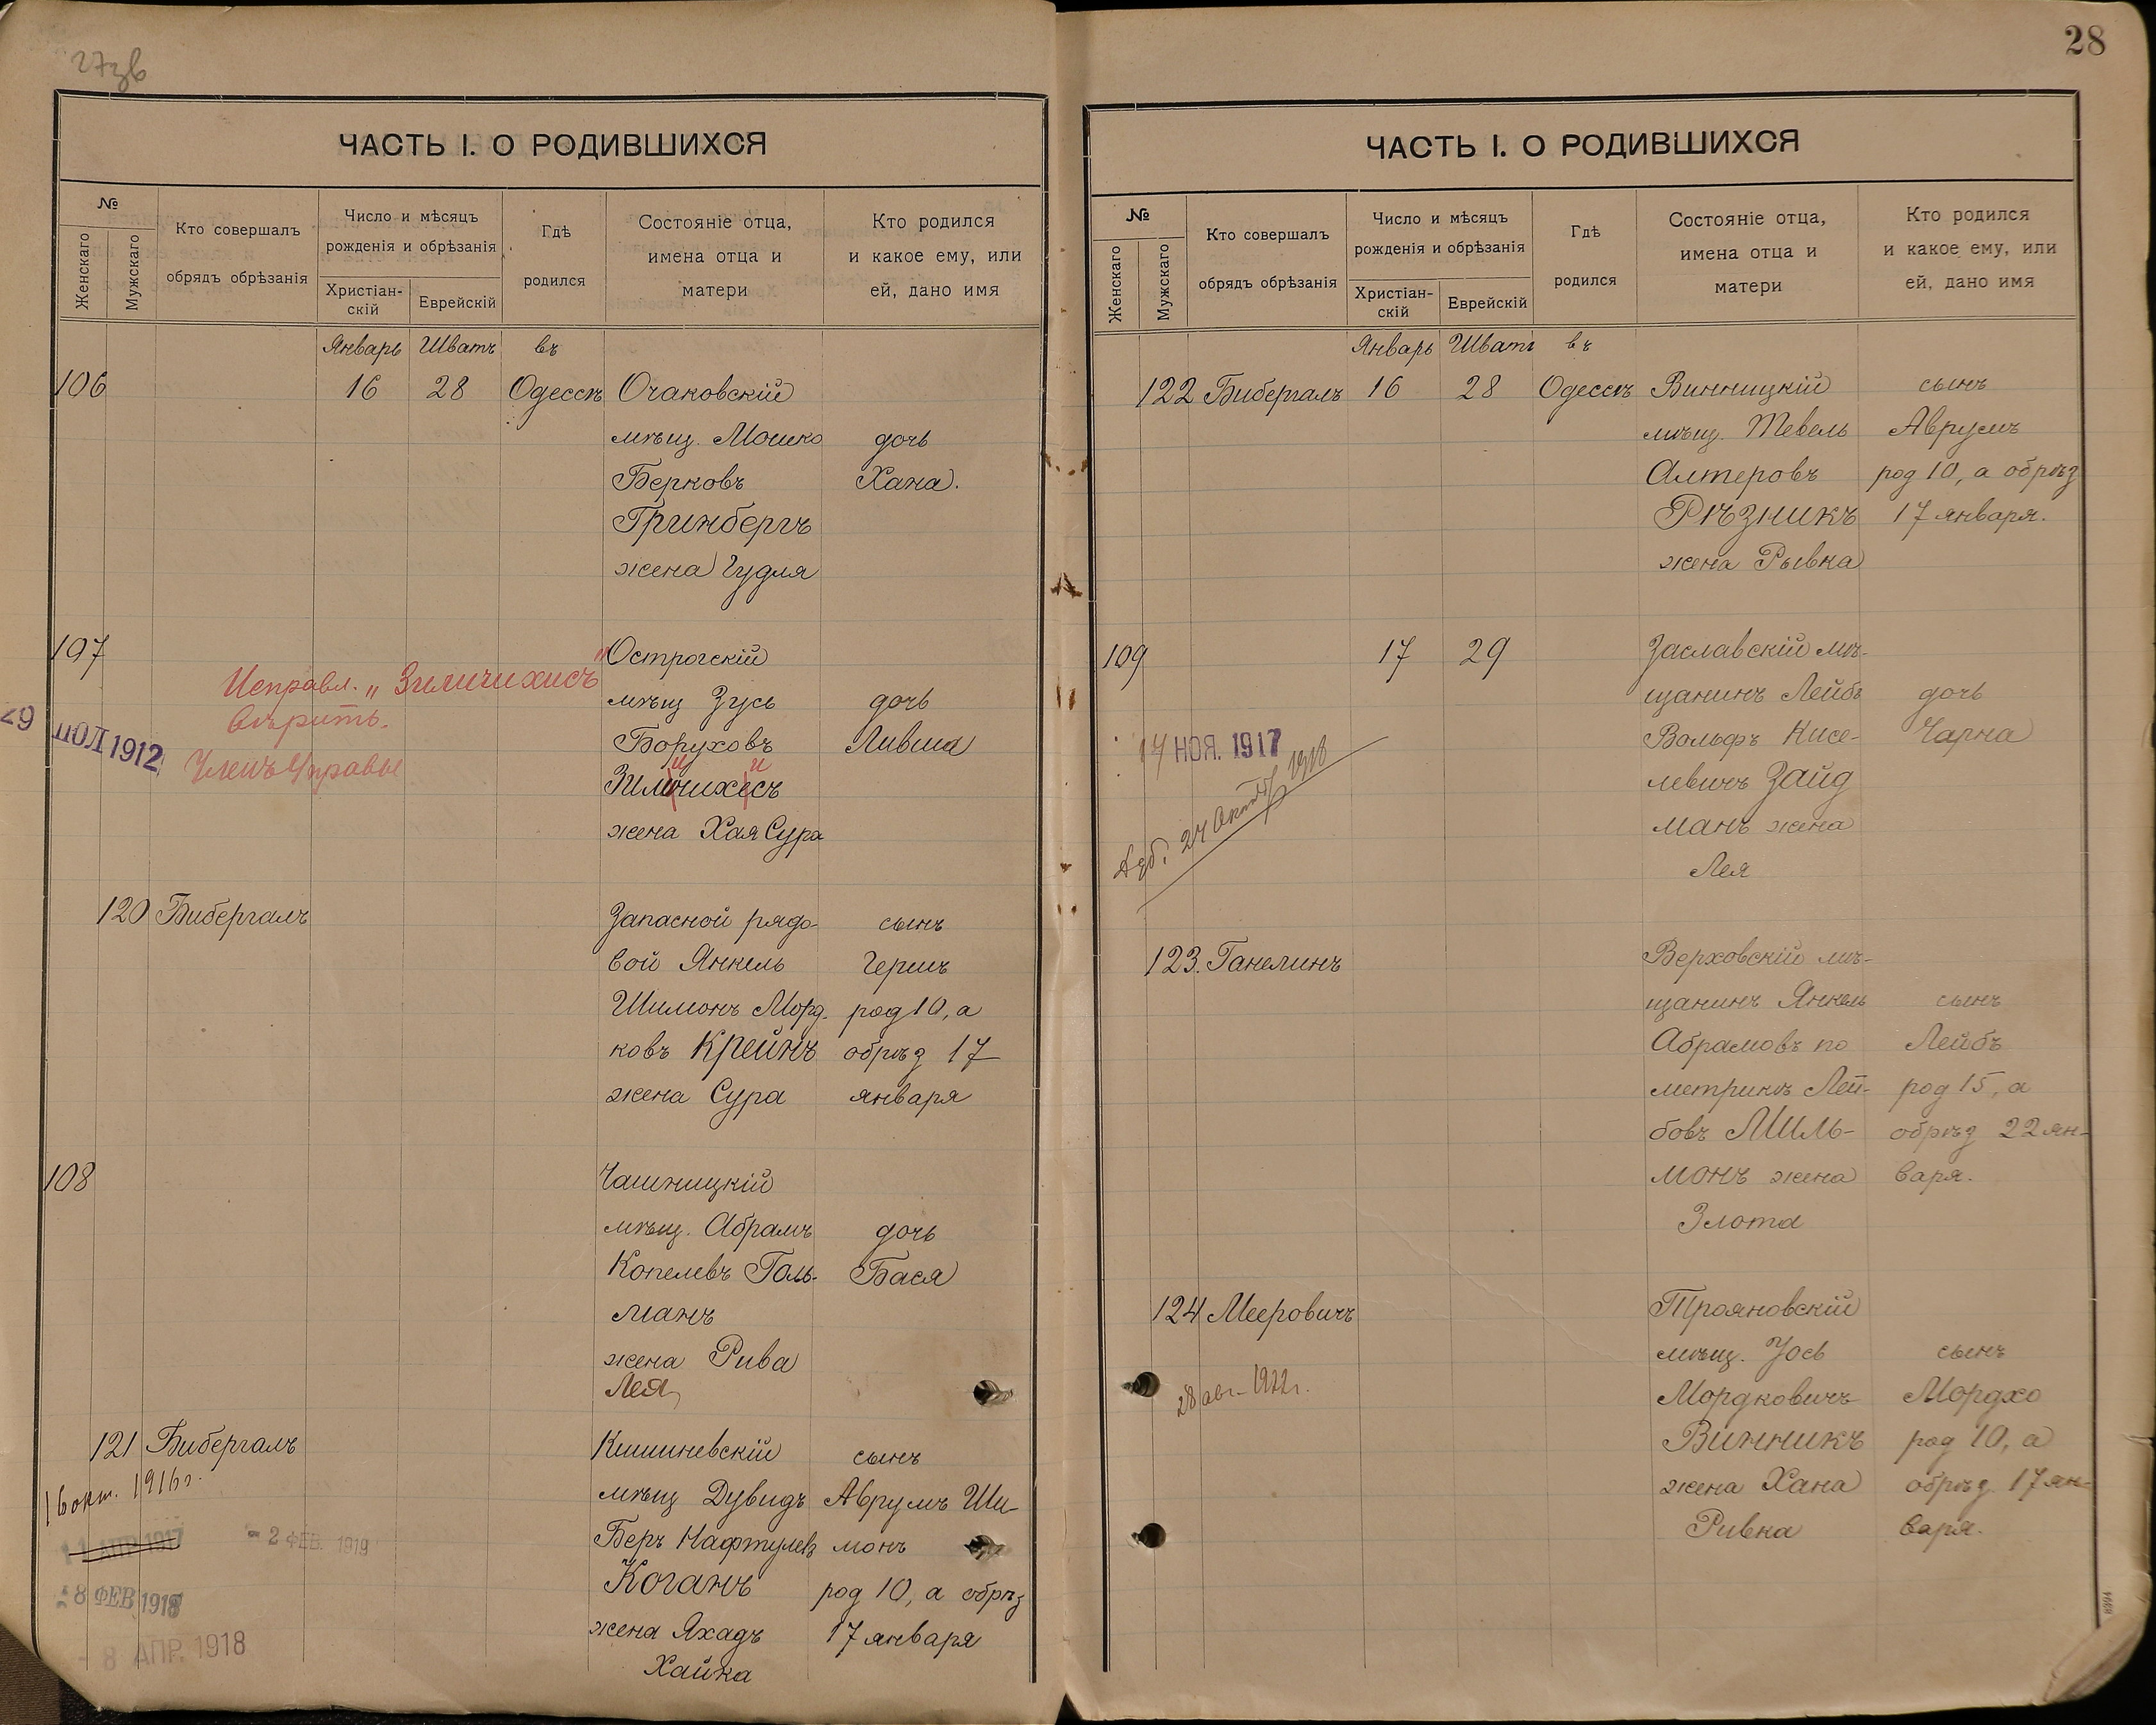 27зв
ЧАСТЬ I. О РОДИВШИХСЯ
№
Женскаго
Мужскаго
Кто совершалъ
обрядъ обрѣзанія
Число и мѣсяцъ
рожденія и обрѣзанія
Христіан-
скій
Еврейскій
Гдѣ
родился
Состояніе отца,
имена отца и
матери
Кто родился
и какое ему, или
ей, дано имя
Январь Шватъ въ
106 16 28 Одессѣ Очаковскій
мѣщ. Мошко дочь
Берковъ Хана.
Гринбергъ
жена Гудля
107 Острогскій
Исправл. „Зиличихисъ"
мѣщ Зусь дочь
вѣрить.
29 ІЮЛ 1912
Боруховъ Ливша
Членъ Управы
Зилничихесъ
и и
жена Хая Сура
120 Бибергалъ Запасной рядо- сынъ
вой Янкель Гершъ
Шимонъ Морд- род 10, а
ковъ Крейнъ обрѣз 17
жена Сура января
108 Чашницкій
мѣщ. Абрамъ дочь
Копелевъ Голь- Бася
манъ
жена Рива
Лея
121 Бибергалъ Кишиневскій сынъ
16 окт. 1916г.
мѣщ Дувидъ Аврумъ Ши-
Беръ Нафтулевъ монъ
1 АПР 1917
- 2 ФЕВ. 1919
Коганъ род 10, а обрѣз
28 ФЕВ 1918
жена Яхадъ 17 января
- 8 АПР. 1918
Хайка
28
ЧАСТЬ I. О РОДИВШИХСЯ
№
Женскаго
Мужскаго
Кто совершалъ
обрядъ обрѣзанія
Число и мѣсяцъ
рожденія и обрѣзанія
Христіан-
скій
Еврейскій
Гдѣ
родился
Состояніе отца,
имена отца и
матери
Кто родился
и какое ему, или
ей, дано имя
Январь Шватъ въ
122 Бибергалъ 16 28 Одессѣ Винницкій сынъ
мѣщ. Тевель Аврумъ
Алтеровъ род 10, а обрѣз
Рѣзникъ 17 января.
жена Рывка
109 17 29 Заславскій мѣ-
щанинъ Лейбъ дочь
Вольфъ Кисе- Чарна
14 НОЯ. 1917
левичъ Зайд
24 Октяб 1918
манъ жена
Лея
123. Ганелинъ Верховскій мѣ-
щанинъ Янкель сынъ
Абрамовъ по Лейбъ
метрикѣ Лей- род 15, а
бовъ Миль- обрѣз 22 ян-
монъ жена варя.
Злота
124 Мееровичъ Трояновскій
мѣщ. Іось сынъ
28 авг. 1922г.
Мордковичъ Мордхо
Винникъ род 10, а
жена Хана обрѣз. 17 ян-
Ривка варя.